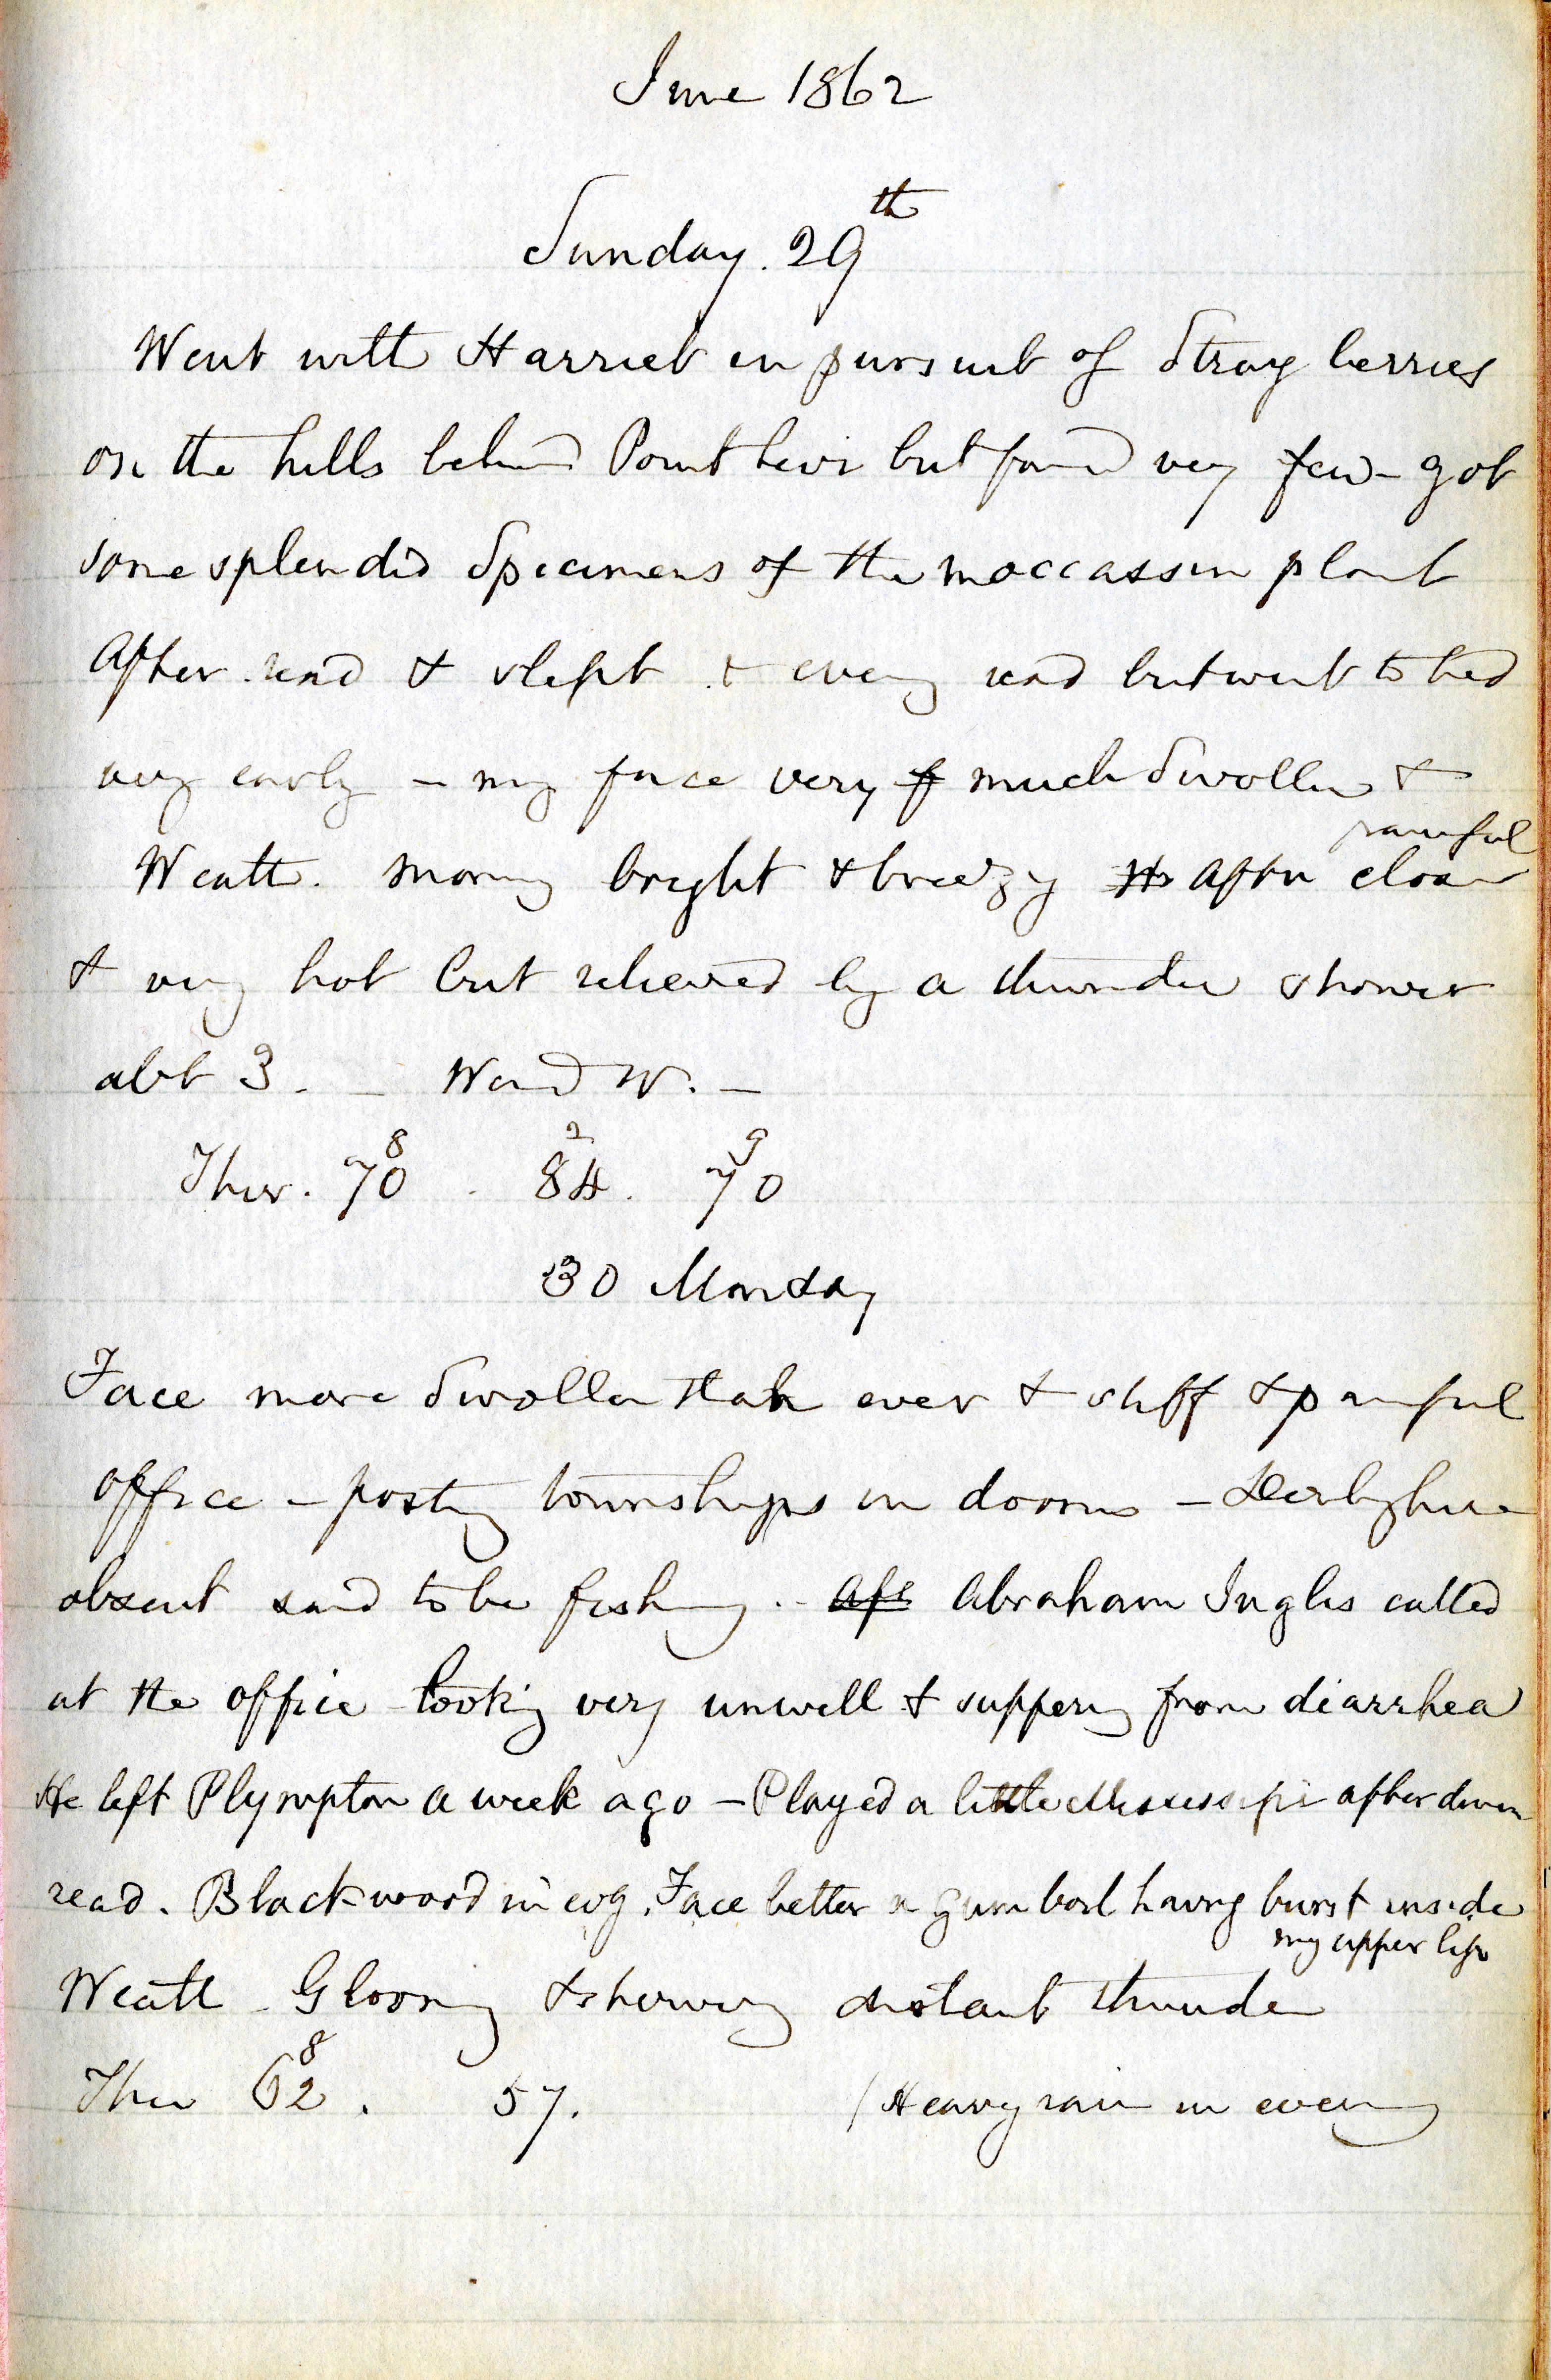 June 1862
Sunday. 29th
Went with Harriet in pursuit of Straw berries
on the hills behind Point Levi but found very few - got
some splendid Specimens of the moccassin plant
After. read & slept & eveng read but went to bed
very early - my face very f much Swollen &
painful
Weath. Morning bright & breezy Th After close
& very hot but relieved by a thunder shower
abt 3. - Wind W. -
8 2 9
Ther. 70 . 84. 70
30 Monday
Face more Swollen than ever & stiff & painful
office - posting townships in dooms - Derbyshire
absent said to be fishing. - Aft Abraham Inglis called
at the office looking very unwell & suffering from diarrhea
He left Plympton a week ago - Played a little Mississipi after dinner
read. Blackwood in evg. Face better a gum boil having burst inside
my upper lip
Weath - Gloomy & showery distant thunder
8
Ther 62. 57. (Heavy rain in evening